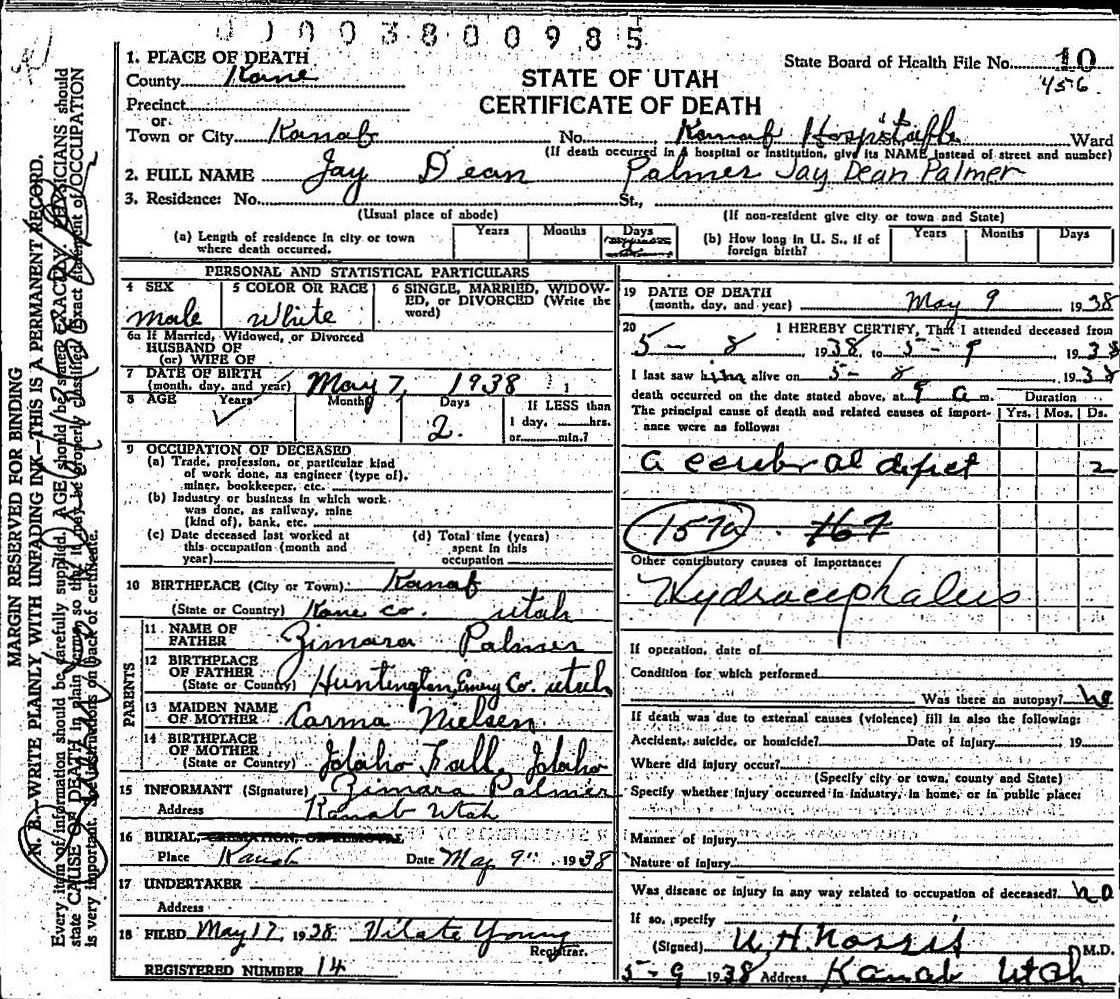 0 1 0 0 3 8 0 0 9 8 5
1. PLACE OF DEATH
County Kane
Precinct
or
Town or City Kanab
STATE OF UTAH
CERTIFICATE OF DEATH
State Board of Health File No. 10
456
No. Kanab Hospital Ward
(If death occurred in a hospital or institution, give its NAME instead of street and number)
2. FULL NAME Jay Dean Palmer Jay Dean Palmer
3. Residence: No. St.,
(Usual place of abode) (If non-resident give city or town and State)
(a) Length of residence in city or town where death occurred. Years Months Days
(b) How long in U. S., if of foreign birth? Years Months Days
PERSONAL AND STATISTICAL PARTICULARS
4 SEX 5 COLOR OR RACE 6 SINGLE, MARRIED, WIDOW-
ED, or DIVORCED (Write the
word)
male White
6a If Married, Widowed, or Divorced
HUSBAND OF
(or) WIFE OF
7 DATE OF BIRTH
(month, day, and year) May 7, 1938
8 AGE Years Months Days If LESS than
2. 1 day, hrs.
or min.?
9 OCCUPATION OF DECEASED
(a) Trade, profession, or particular kind
of work done, as engineer (type of),
miner, bookkeeper, etc.
(b) Industry or business in which work
was done, as railway, mine
(kind of), bank, etc.
(c) Date deceased last worked at
this occupation (month and
year)
(d) Total time (years)
spent in this
occupation
10 BIRTHPLACE (City or Town) Kanab
(State or Country) Kane Co. Utah
PARENTS
11 NAME OF
FATHER Zimara Palmer
12 BIRTHPLACE
OF FATHER
(State or Country) Huntington, Emery Co. Utah
13 MAIDEN NAME
OF MOTHER Carma Nielsen
14 BIRTHPLACE
OF MOTHER
(State or Country) Idaho Fall, Idaho
15 INFORMANT (Signature) Zimara Palmer
Address Kanab Utah
16 BURIAL, CREMATION, OR REMOVAL
Place Kanab Date May 9" 1938
17 UNDERTAKER
Address
18 FILED May 17, 1938 Vilate Young
Registrar.
REGISTERED NUMBER 14
19 DATE OF DEATH
(month, day, and year) May 9 1938
20 I HEREBY CERTIFY, That I attended deceased from
5 - 8 1938 to 5 - 9 1938
I last saw him alive on 5 - 8 1938
death occurred on the date stated above, at 9 a m.
Duration
The principal cause of death and related causes of import-
ance were as follows:
Yrs. Mos. Ds.
a cerebral defect 2
157a 167
Other contributory causes of importance:
Hydracephalus
If operation, date of
Condition for which performed
Was there an autopsy? no
If death was due to external causes (violence) fill in also the following:
Accident, suicide, or homicide? Date of injury 19
Where did injury occur?
(Specify city or town, county and State)
Specify whether injury occurred in industry, in home, or in public place:
Manner of injury
Nature of injury
Was disease or injury in any way related to occupation of deceased? no
If so, specify
(Signed) U. H. Norris M.D.
5 - 9 1938 Address Kanab Utah
MARGIN RESERVED FOR BINDING
N. B.—WRITE PLAINLY WITH UNFADING INK—THIS IS A PERMANENT RECORD.
Every item of information should be carefully supplied. AGE should be stated EXACTLY. PHYSICIANS should
state CAUSE OF DEATH in plain terms so that it may be properly classified. Exact statement of OCCUPATION
is very important. See instructions on back of certificate.